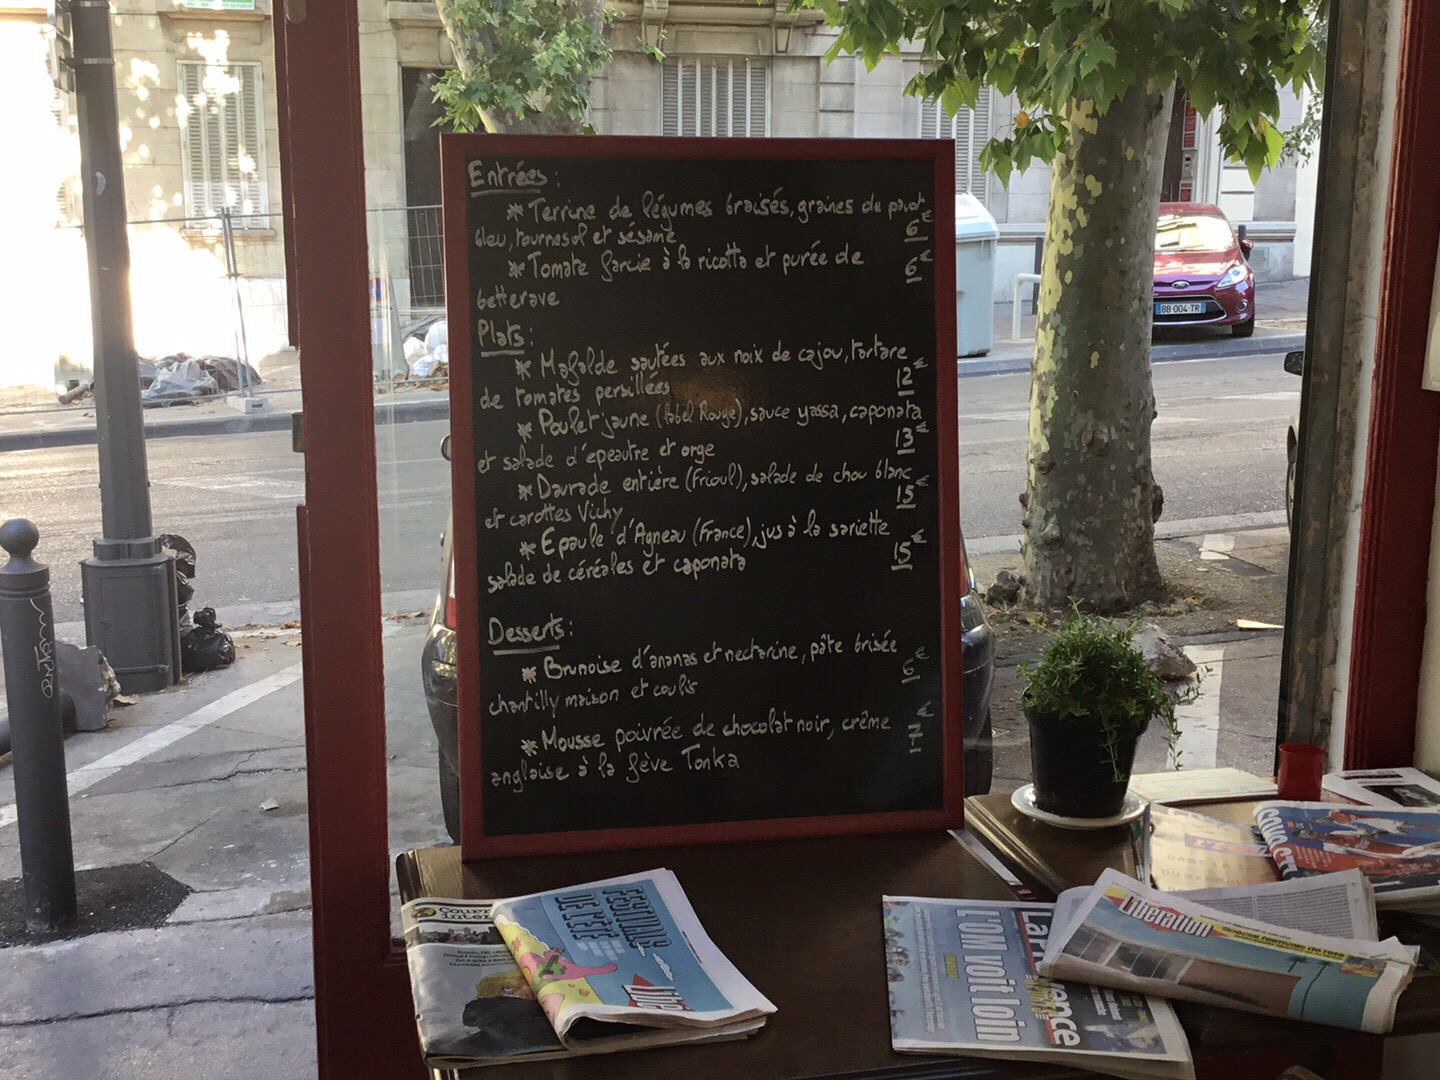 Entrées :
* Terrine de légumes braisés, graines de pavot
bleu, tournesol et sésame 6€
* Tomate farcie à la ricotta et purée de 6€
betterave
Plats :
* Mafalde sautées aux noix de cajou, tartare
de tomates persillées 12€
* Poulet jaune (label Rouge), sauce yassa, caponata
et salade d'epeautre et orge 13€
* Daurade entière (Frioul), salade de chou blanc
et carottes Vichy 15€
* Epaule d'Agneau (France), jus à la sariette
salade de céréales et caponata 15€
Desserts :
* Brunoise d'ananas et nectarine, pâte brisée
chantilly maison et coulis 6€
* Mousse poivrée de chocolat noir, crême
anglaise à la fève Tonka 7€
BB 004 TR
FESTIVALS
DE L'ÉTÉ
L'OM voit loin
Libération